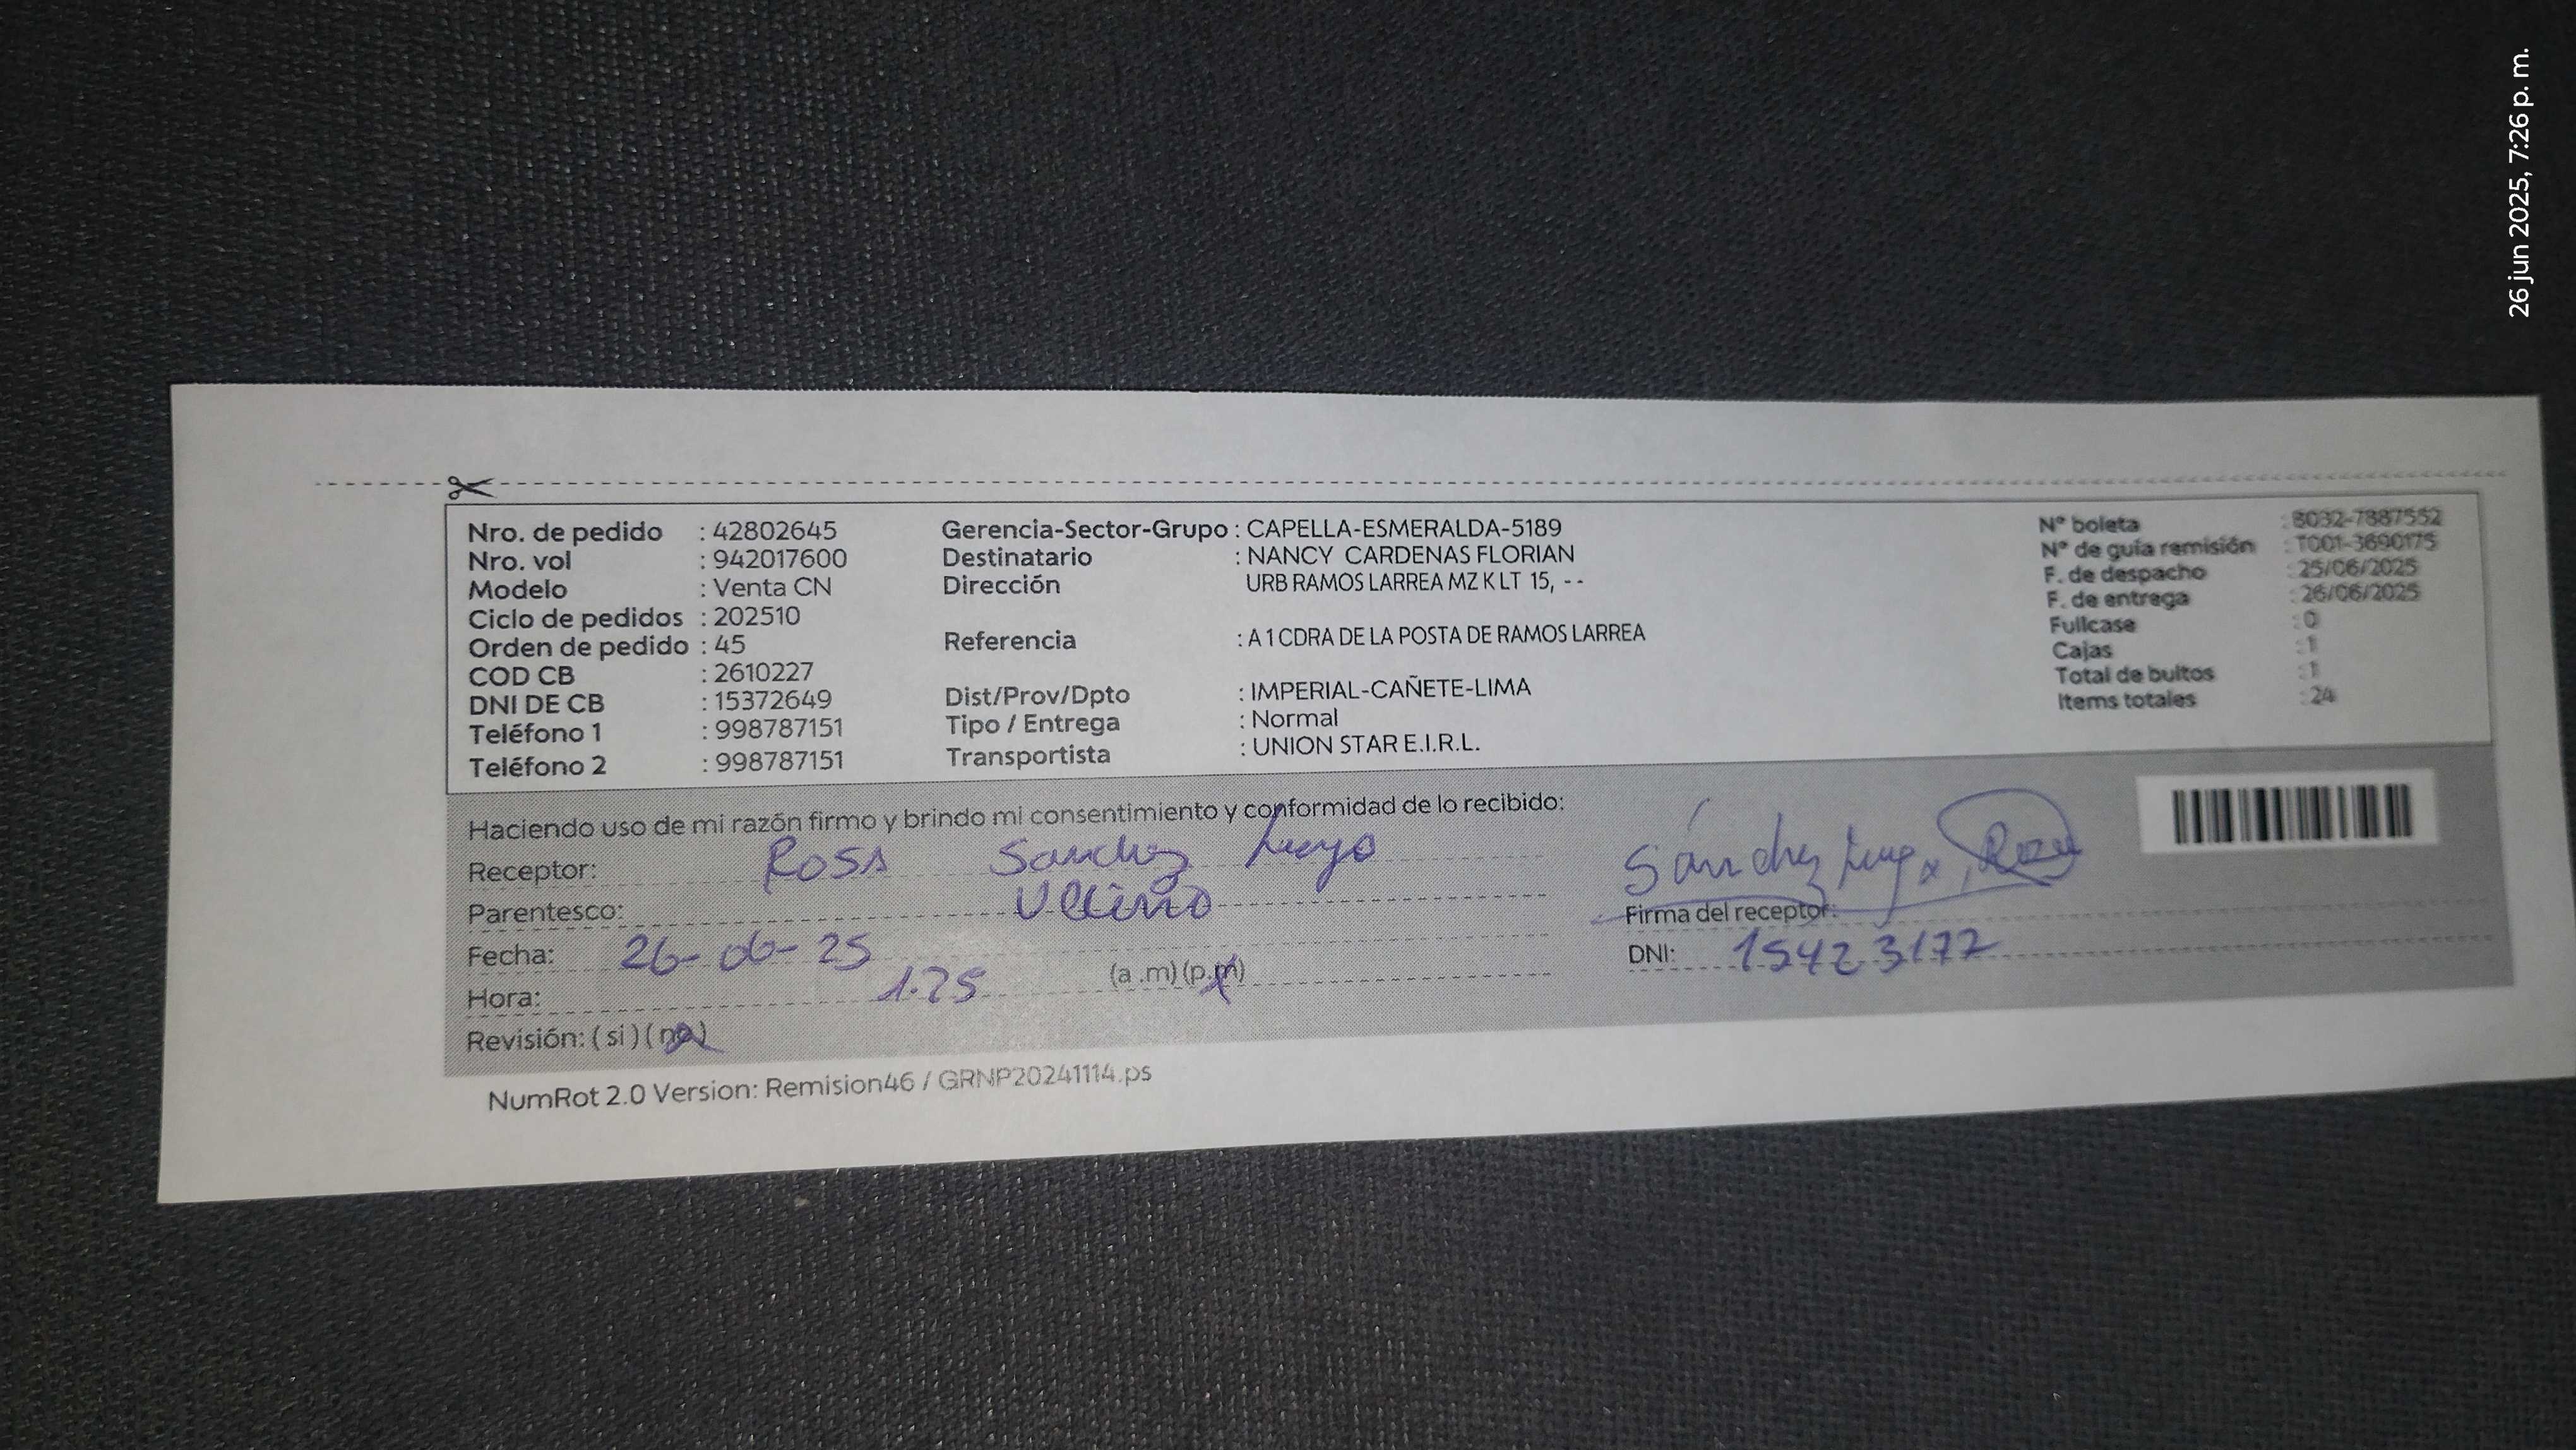 26 jun 2025, 7:26 p. m.
Nro. de pedido : 42802645
Nro. vol : 942017600
Modelo : Venta CN
Ciclo de pedidos : 202510
Orden de pedido : 45
COD CB : 2610227
DNI DE CB : 15372649
Teléfono 1 : 998787151
Teléfono 2 : 998787151
Gerencia-Sector-Grupo : CAPELLA-ESMERALDA-5189
Destinatario : NANCY CARDENAS FLORIAN
Dirección URB RAMOS LARREA MZ K LT 15, - -
Referencia : A 1 CDRA DE LA POSTA DE RAMOS LARREA
Dist/Prov/Dpto : IMPERIAL-CAÑETE-LIMA
Tipo / Entrega : Normal
Transportista : UNION STAR E.I.R.L.
N° boleta : B032-7887552
N° de guía remisión : T001-3690175
F. de despacho : 25/06/2025
F. de entrega : 26/06/2025
Fullcase : 0
Cajas : 1
Total de bultos : 1
Items totales : 24
Haciendo uso de mi razón firmo y brindo mi consentimiento y conformidad de lo recibido:
Receptor: Rosa Sanchez Luyo
Parentesco:
Fecha: 26-06-25
Hora: 1.25 (a .m) (p.m)
Revisión: ( si ) ( no )
Sánchez Rosa
Firma del receptor:
DNI: 15423177
NumRot 2.0 Version: Remision46 / GRNP20241114.ps